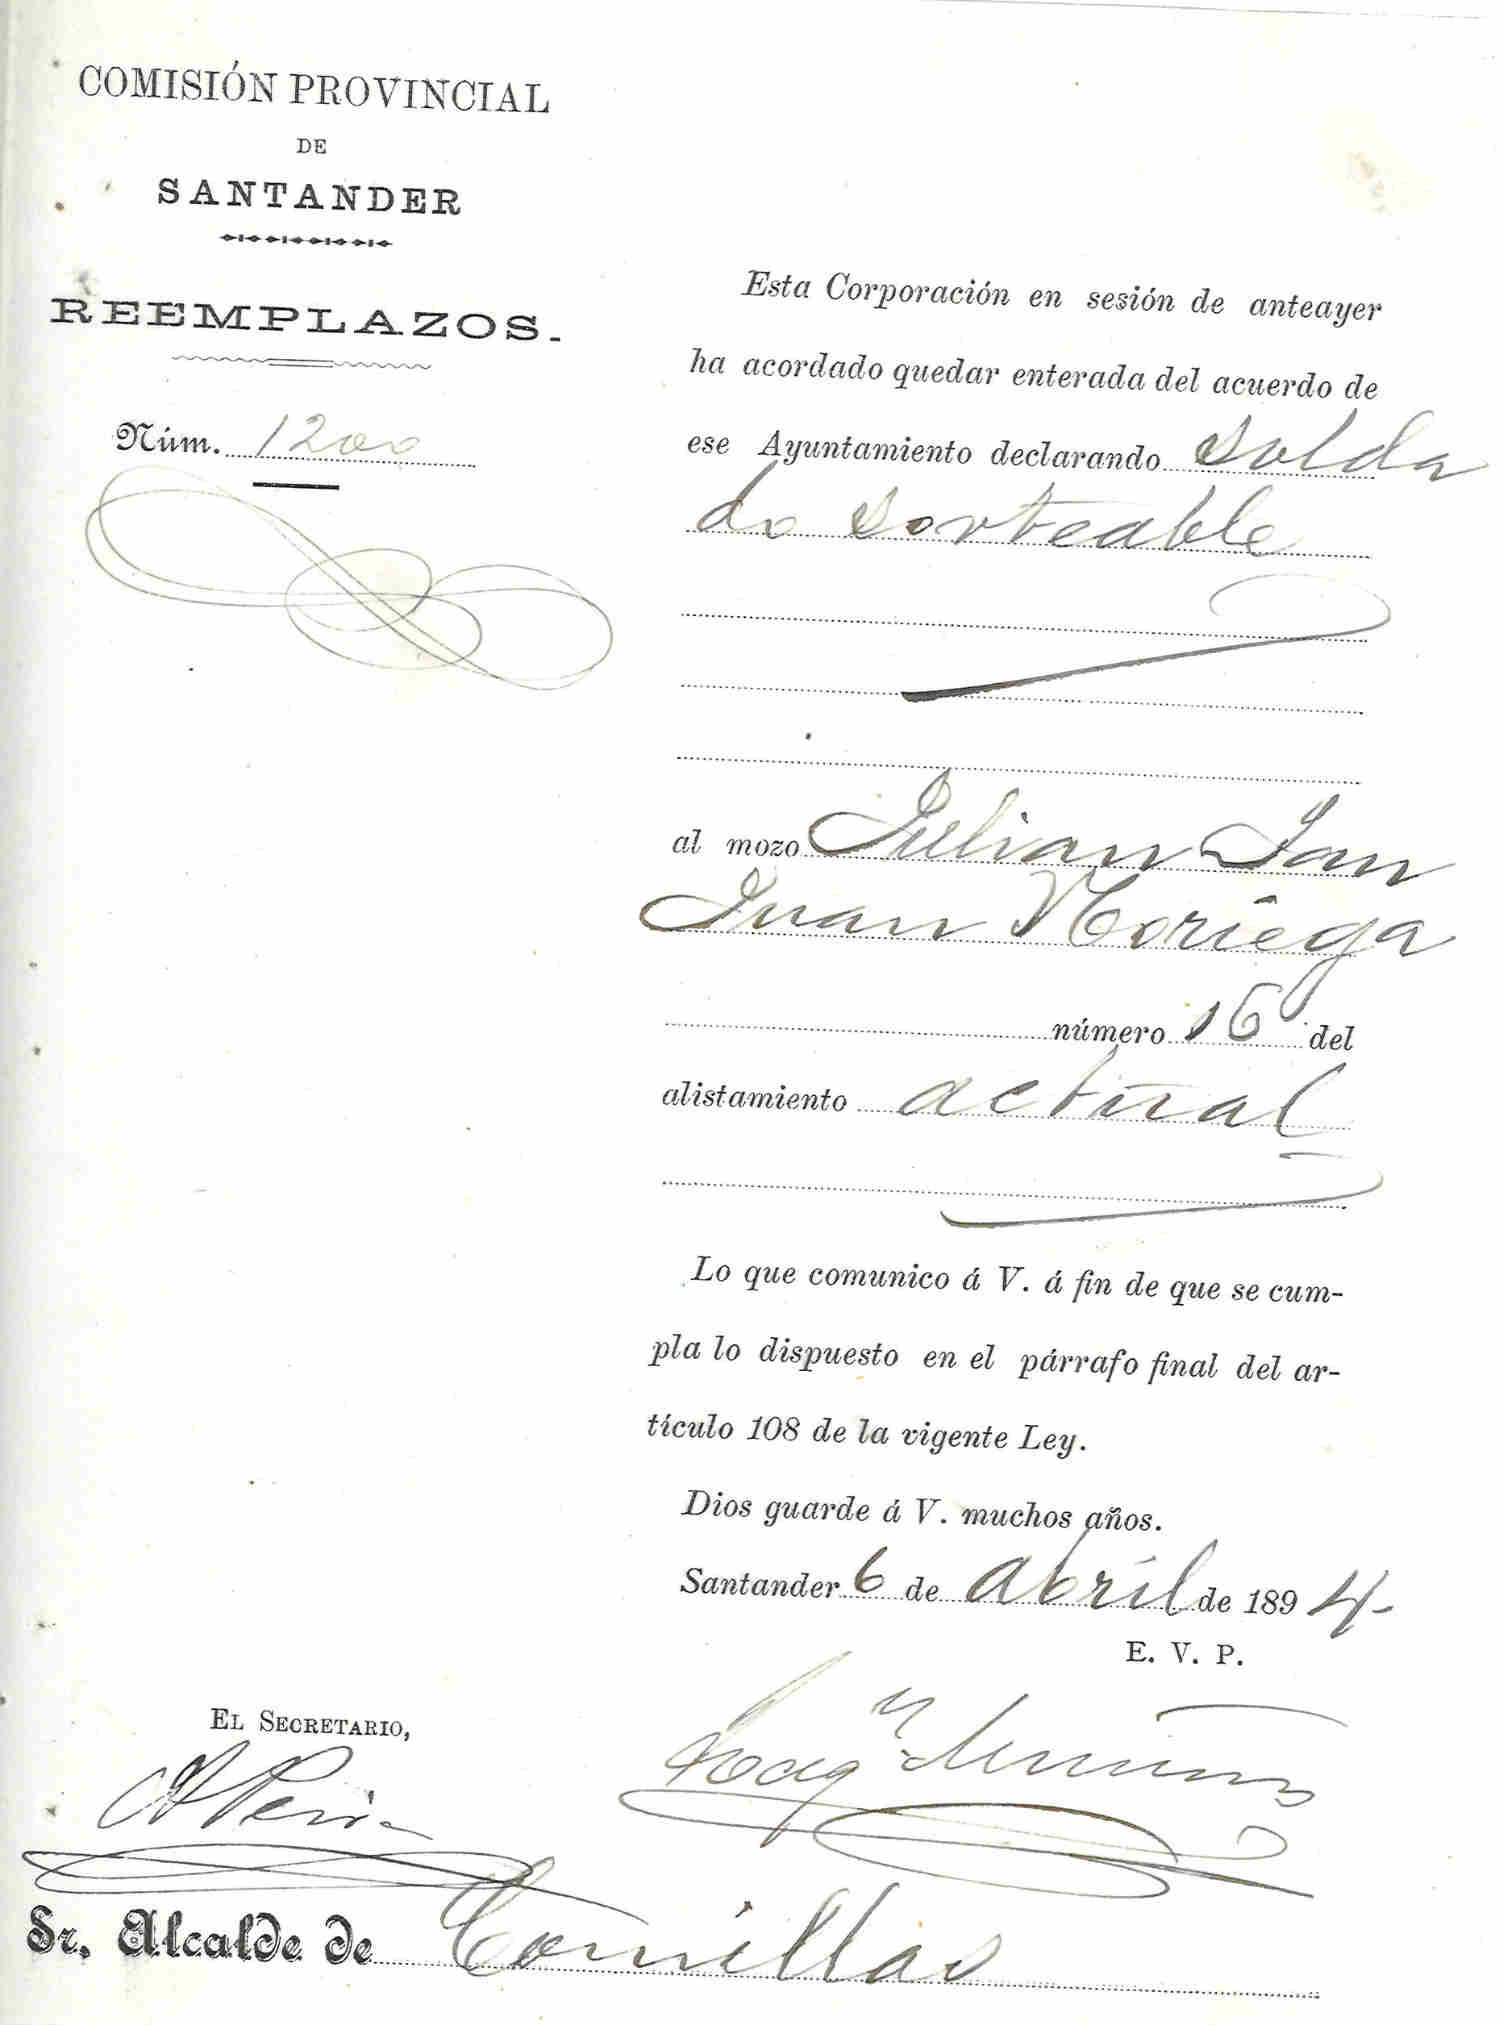 COMISIÓN PROVINCIAL
DE
SANTANDER
REEMPLAZOS.
Núm. 1200
Esta Corporación en sesión de anteayer
ha acordado quedar enterada del acuerdo de
ese Ayuntamiento declarando solda
do sorteable
al mozo Julian San
Juan Noriega
número 16 del
alistamiento actual
Lo que comunico á V. á fin de que se cum-
pla lo dispuesto en el párrafo final del ar-
tículo 108 de la vigente Ley.
Dios guarde á V. muchos años.
Santander 6 de Abril de 1894-
E. V. P.
EL SECRETARIO,
Sr. Alcalde de Comillas